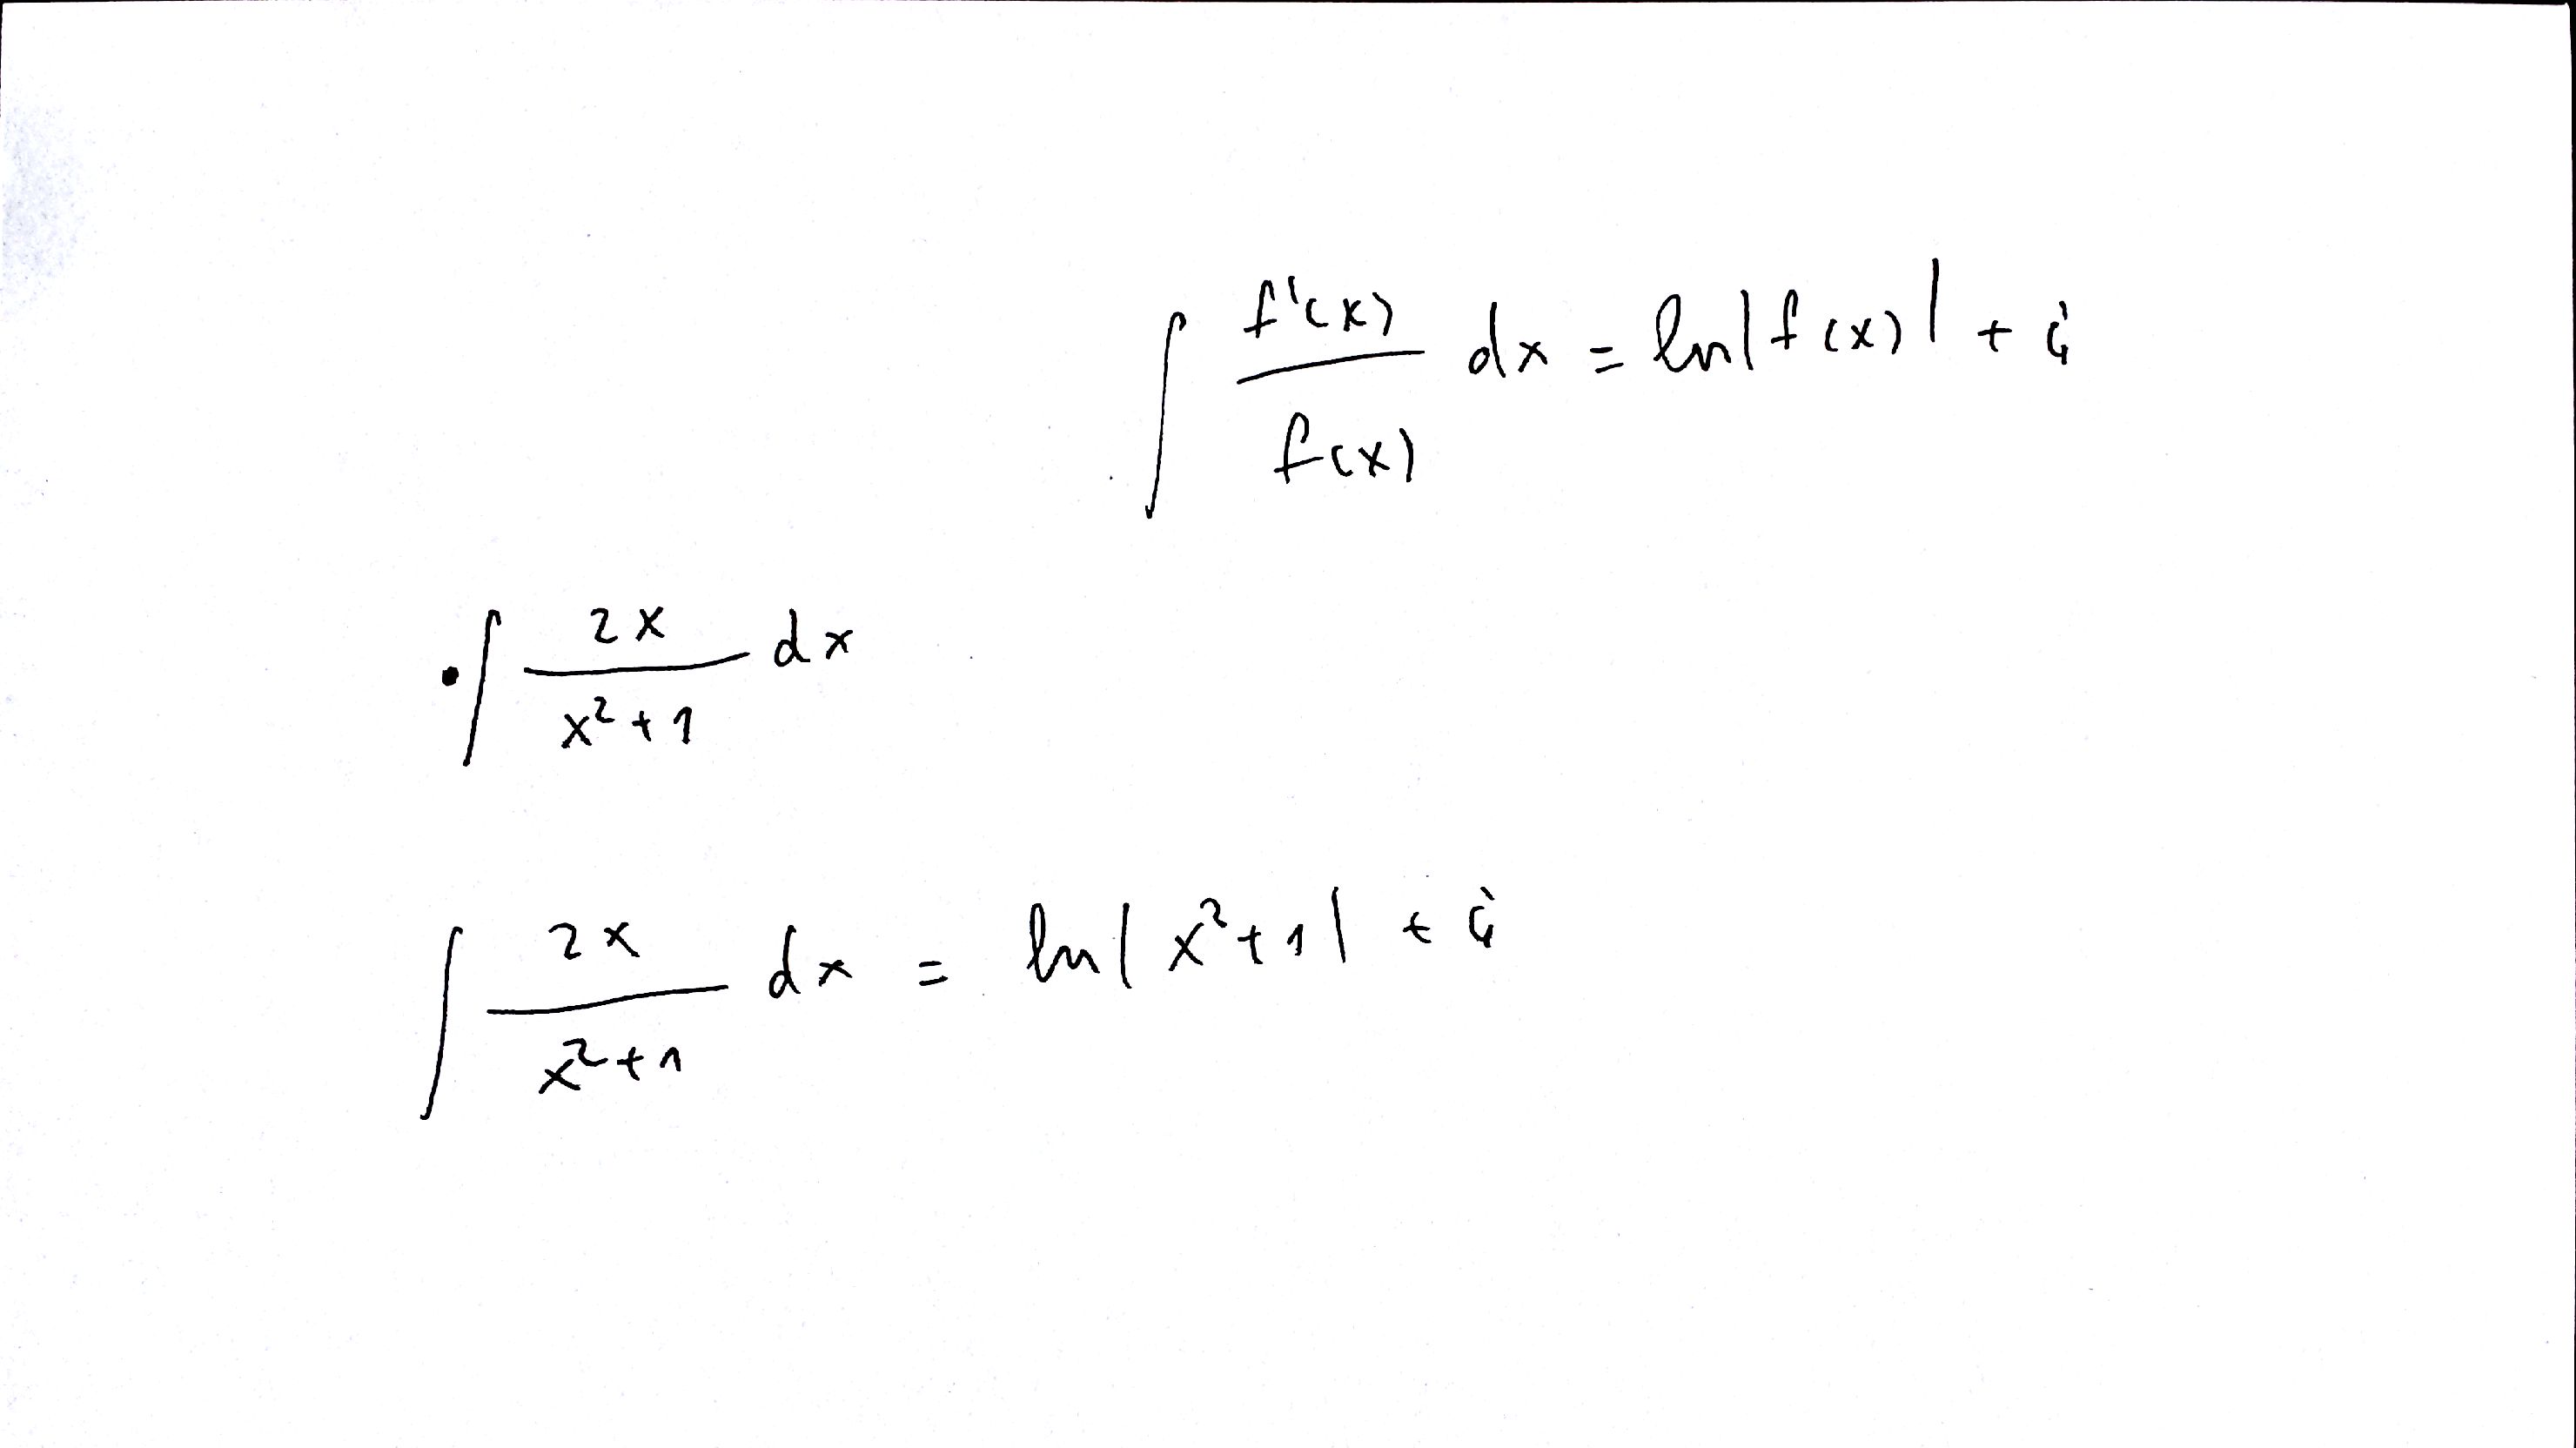 ∫ f'(x)/f(x) dx = ln|f(x)| + c
• ∫ 2x/(x²+1) dx
∫ 2x/(x²+1) dx = ln|x²+1| + c